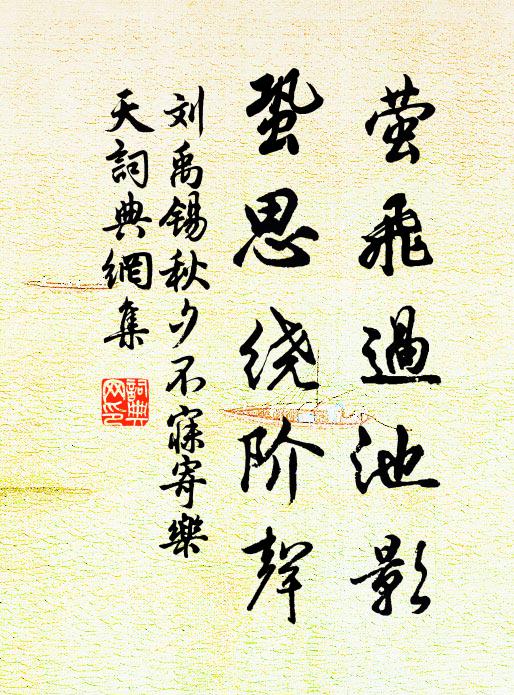 萤飛過池影
蛩思绕阶聲
刘禹锡秋夕不寐寄樂
天詞典網集
詞典
网印